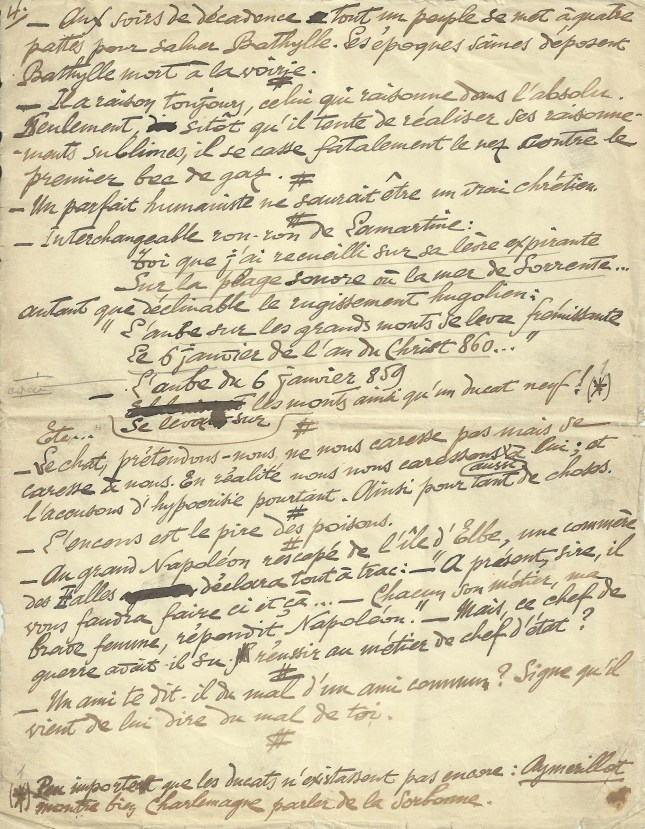 4.
— Aux soirs de décadence tout un peuple se met à quatre
pattes pour saluer Bathylle. Les époques saines déposent
Bathylle mort à la voirie.
#
— Il a raison toujours, celui qui raisonne dans l'absolu.
Seulement, sitôt qu'il tente de réaliser ses raisonne-
-ments sublimes, il se casse fatalement le nez contre le
premier bec de gaz.
#
— Un parfait humaniste ne saurait être un vrai chrétien.
#
— Interchangeable ron-ron de Lamartine :
Toi que j'ai recueilli sur sa lèvre expirante
Sur la plage sonore où la mer de Sorrente...
autant que déclinable le rugissement hugolien :
"L'aube sur les grands monts se leva frémissante
Le 6 janvier de l'an du Christ 860..."
— L'aube du 6 janvier 859
les monts ainsi qu'un ducat neuf ! (*)
Se levait sur
Etc...
#
— Le chat, prétendons-nous, ne nous caresse pas mais se
caresse à nous. En réalité nous nous caressons à lui ; et
l'accusons d'hypocrisie pourtant. Ainsi pour (aussi) tant de choses.
#
— L'encens est le pire des poisons.
#
— Au grand Napoléon rescapé de l'île d'Elbe, une commère
des Halles déclara tout à trac : — "A présent, sire, il
vous faudra faire ci et çà... — Chacun son métier, ma
brave femme, répondit Napoléon." — Mais, ce chef de
guerre avait-il su réussir au métier de chef d'état ?
#
— Un ami te dit-il du mal d'un ami commun ? Signe qu'il
vient de lui dire du mal de toi.
#
(*) Peu importent que les ducats n'existassent pas encore : Aymerillot
montre bien Charlemagne parler de la Sorbonne.